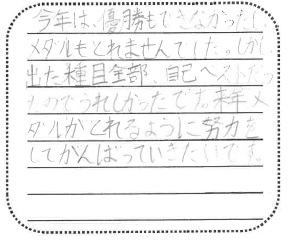 今年は、優勝もできなかったし
メダルもとれませんでした。しかし
出た種目全部、自己ベストだっ
たのでうれしかったです。来年メ
ダルがとれるように努力を
してがんばっていきたいです。